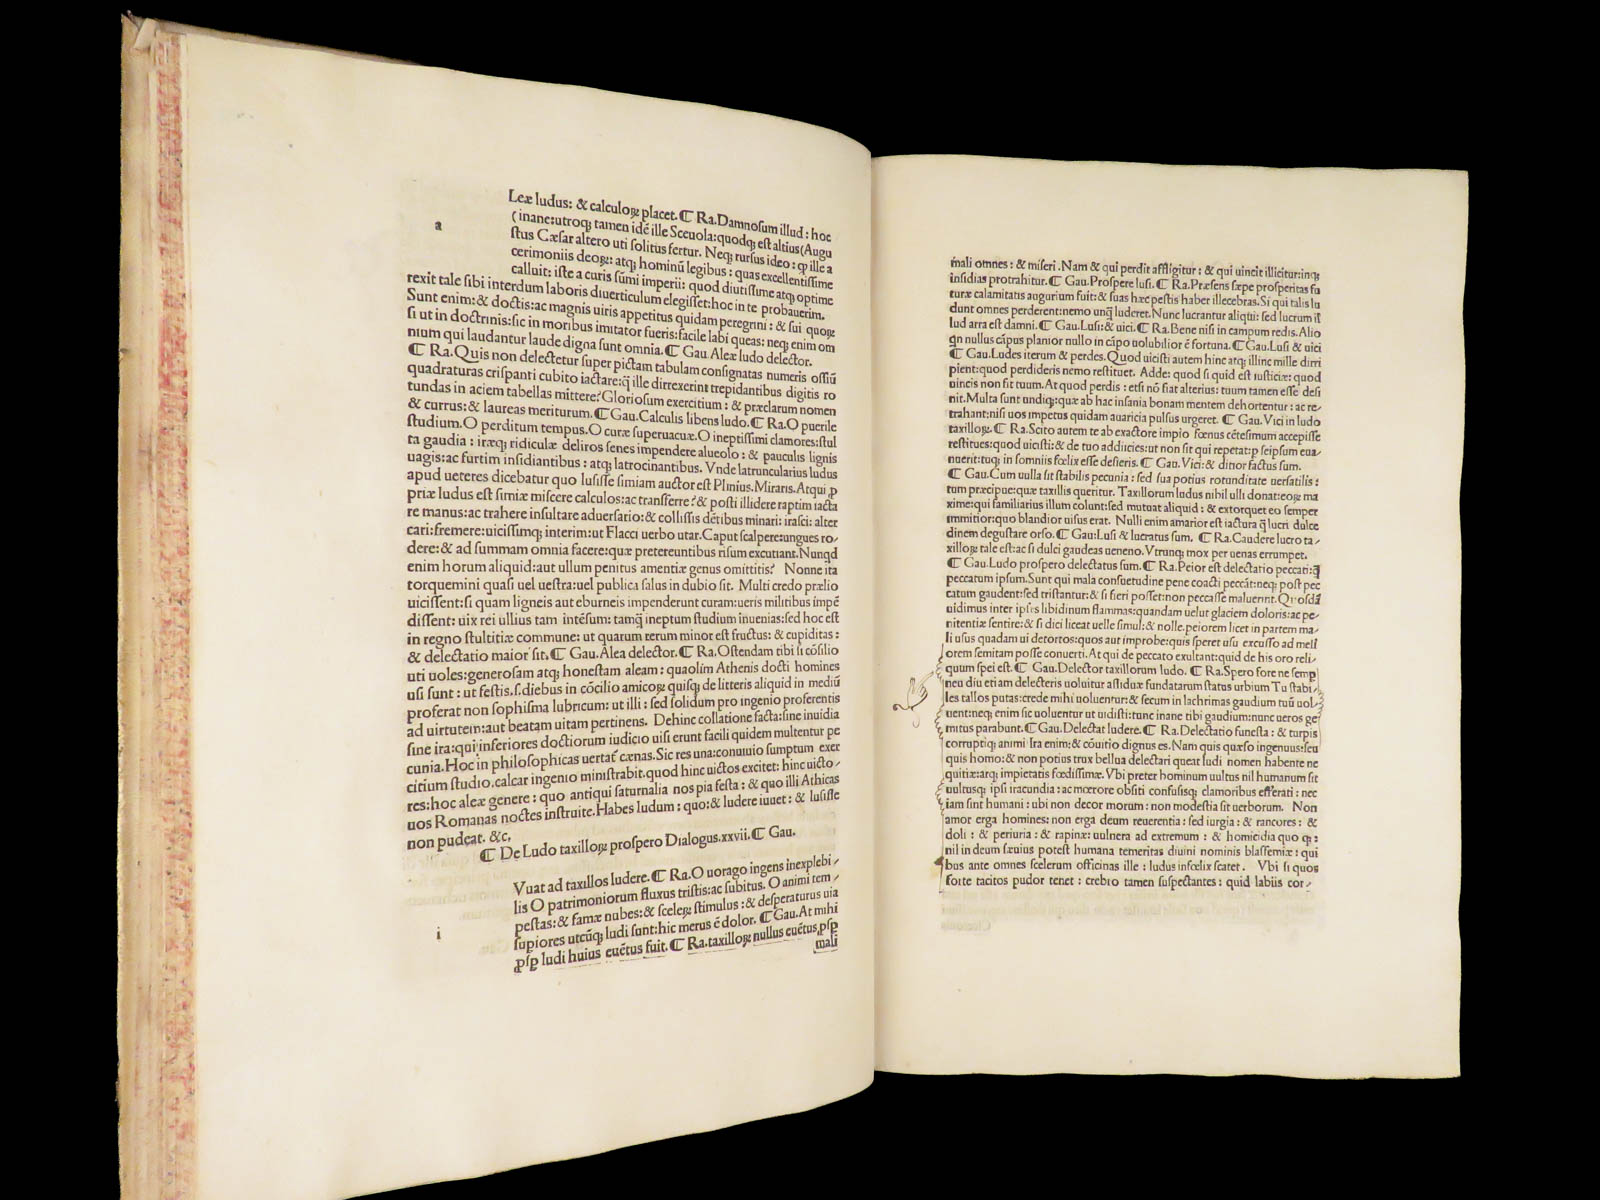 a
Leæ ludus: & calculoꝝ placet.¶ Ra.Damnosum illud: hoc
(inane:utroq; tamen idē ille Sceuola:quodq; est altius(Augu
stus Cæsar altero uti solitus fertur. Neq; rursus ideo: ꝙ ille a
cerimoniis deoꝝ: atq; hominū legibus: quas excellentissime
calluit: iste a curis sūmi imperii: quod diutissime atq; optime
rexit tale sibi interdum laboris diuerticulum elegisset:hoc in te probauerim.
Sunt enim:& doctis:ac magnis uiris appetitus quidam peregrini: & sui quoꝝ
si ut in doctrinis:sic in moribus imitator fueris:facile labi queas: neq; enim om
nium qui laudantur laude digna sunt omnia.¶ Gau. Aleæ ludo delector.
¶ Ra.Quis non delectetur super pictam tabulam consignatas numeris ossiū
quadraturas crispanti cubito iactare:q̄ ille dirrexerint trepidantibus digitis ro
tundas in aciem tabellas mittere?Gloriosum exercitium: & præclarum nomen
& currus:& laureas meriturum.¶ Gau.Calculis libens ludo.¶ Ra.O puerile
studium.O perditum tempus.O curæ superuacuæ.O ineptissimi clamores:stul
ta gaudia: iræq; ridiculæ deliros senes impendere alueolo: & pauculis lignis
uagis:ac furtim insidiantibus: atq; latrocinantibus. Vnde latruncularius ludus
apud ueteres dicebatur quo lusisse simiam auctor est Plinius.Miraris.Atqui ꝓ
priæ ludus est simiæ miscere calculos:ac transferre?& posti illidere raptim iacta
re manus:ac trahere insultare aduersario:& collisis dētibus minari: irasci: alter
cari:fremere:uicissimq; interim:ut Flacci uerbo utar.Caput scalpere:ungues ro/
dere:& ad summam omnia facere:quæ pretereuntibus risum excutiant.Nunqd
enim horum aliquid:aut ullum penitus amentiæ genus omittitis? Nonne ita
torquemini quasi uel uestra:uel publica salus in dubio sit. Multi credo prælio
uicissent:si quam ligneis aut eburneis impenderunt curam:ueris militibus impē
dissent: uix rei ullius tam intēsum: tamq̄ ineptum studium inuenias:sed hoc est
in regno stultitiæ commune: ut quarum rerum minor est fructus: & cupiditas:
& delectatio maior sit.¶ Gau.Alea delector.¶ Ra.Ostendam tibi si cōsilio
uti uoles:generosam atq; honestam aleam: quaolim Athenis docti homines
usi sunt: ut festis.s.diebus in cōcilio amicoꝝ quisq; de litteris aliquid in mediū
proferat non sophisma lubricum: ut illi: sed solidum pro ingenio proferentis
ad uirtutem:aut beatam uitam pertinens. Dehinc collatione facta:sine inuidia
sine ira:qui inferiores doctiorum iudicio uisi erunt facili quidem multentur pe
cunia.Hoc in philosophicas uertat cænas.Sic res una:conuiuio sumptum exer
citium studio.calcar ingenio ministrabit.quod hinc uictos excitet: hinc uicto/
res:hoc aleæ genere: quo antiqui saturnalia nos pia festa: & quo illi Athicas
uos Romanas noctes instruite.Habes ludum: quo:& ludere iuuet: & lusisse
non pudeat. &c.
¶ De Ludo taxilloꝝ prospero Dialogus.xxvii.¶ Gau.
i
Vuat ad taxillos ludere.¶ Ra.O uorago ingens inexplebi/
lis O patrimoniorum fluxus tristis:ac subitus. O animi tem/
pestas:& famæ nubes:& sceleꝝ stimulus: & desperaturus uia
supiores utcūq; ludi sunt:hic merus ē dolor. ¶Gau.At mihi
ꝓspꝑ ludi huius euētus fuit.¶ Ra.taxilloꝝ nullus euētus ꝓspꝑ
mali
mali omnes: & miseri.Nam & qui perdit affligitur: & qui uincit illicitur:inq;
insidias protrahitur.¶ Gau.Prospere lusi.¶ Ra.Præsens sæpe prosperitas fu
turæ calamitatis augurium fuit:& suas hæc pestis haber illecebras.Si qui talis lu
dunt omnes perderent:nemo unq̄ luderet.Nunc lucrantur aliqui: sed lucrum il
lud arra est damni.¶ Gau.Lusi:& uici.¶ Ra.Bene nisi in campum redis.Alio
qn nullus cāpus planior nullo in cāpo uolubilior ē fortuna.¶Gau.Lusi & uici
¶ Gau.Ludes iterum & perdes.Quod uicisti autem hinc atq; illinc mille dirri
pient:quod perdideris nemo restituet. Adde: quod si quid est iusticiæ: quod
uincis non fit tuum.At quod perdis: etsi nō fiat alterius: tuum tamen esse desi
nit.Multa sunt undiq;:quæ ab hac insania bonam mentem dehortentur: ac re/
trahant:nisi uos impetus quidam auaricia pulsus urgeret. ¶ Gau.Vici in ludo
taxilloꝝ.¶ Ra.Scito autem te ab exactore impio fœnus cētesimum accepisse
restitues:quod uicisti:& de tuo addicies:ut non sit qui repetat:p seipsum eua/
nuerit:tuq; in somniis fœlix esse desieris. ¶ Gau.Vici:& dinor factus sum.
¶ Gau.Cum uulla sit stabilis pecunia: sed sua potius rotunditate uersatilis:
tum præcipue:quæ taxillis queritur. Taxillorum ludus nihil ulli donat:eoꝝ ma
xime:qui familiarius illum colunt:sed mutuat aliquid: & extorquet eo semper
immitior:quo blandior uisus erat. Nulli enim amarior est iactura q̄ lucri dulce
dinem degustare orso.¶ Gau:Lusi & lucratus sum. ¶ Ra.Caudere lucro ta/
xilloꝝ tale est:ac si dulci gaudeas ueneno.Vtrunq; mox per uenas errumpet.
¶ Gau.Ludo prospero delectatus sum.¶ Ra.Peior est delectatio peccati:q̄
peccatum ipsum.Sunt qui mala consuetudine pene coacti peccāt:neq; post pec
catum gaudent:sed tristantur:& si fieri posset:non peccasse maluerint.Quosdā
uidimus inter ipsis libidinum flammas:quandam uelut glaciem doloris:ac pe/
nitentiæ sentire:& si dici liceat uelle simul:& nolle.peiorem licet in partem ma/
li usus quadam ui detortos:quos aut improbe:quis speret usu excusso ad meli
orem semitam posse conuerti.At qui de peccato exultant:quid de his oro reli/
quum spei est.¶ Gau.Delector taxillorum ludo. ¶ Ra.Spero fore ne semꝑ
neu diu etiam delecteris uoluitur assiduæ fundatarum status urbium Tu stabi/
les tallos putas:crede mihi uoluentur:& secum in lachrimas gaudium tuū uol/
uent:neq; enim sic uoluentur ut uidisti:tunc inane tibi gaudium:nunc ueros ge/
mitus parabunt.¶ Gau.Delectat ludere.¶ Ra.Delectatio funesta: & turpis
corruptiq; animi Ira enim:& cōuitio dignus es.Nam quis quæso ingenuus:seu
quis homo:& non potius trux bellua delectari queat ludi nomen habente ne
quitiæ:atq; impietatis fœdissimæ. Vbi preter hominum uultus nil humanum sit
uultusq; ipsi iracundia: ac mœrore obsiti confusisq; clamoribus efferati: nec
iam sint humani: ubi non decor morum: non modestia sit uerborum. Non
amor erga homines: non erga deum reuerentia: sed iurgia: & rancores: &
doli: & periuria: & rapinæ: uulnera ad extremum: & homicidia quo q;:
nil in deum sæuius potest humana temeritas diuini nominis blassemiæ: qui
bus ante omnes scelerum officinas ille: ludus infœlix scatet. Vbi si quos
forte tacitos pudor tenet: crebro tamen suspectantes: quid labiis cor/